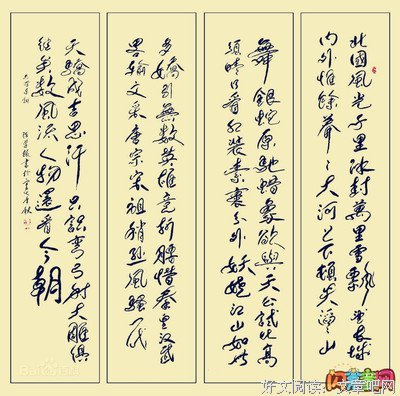 北國風光千里冰封萬里雪飄望長城
内外惟餘莽々大河上下頓失滔々山
舞銀蛇原馳蜡象欲與天公試比高
須晴日看紅裝素裹分外妖嬈江山如此
多嬌引無數英雄競折腰惜秦皇漢武
略輸文采唐宗宋祖稍遜風騷一代
天驕成吉思汗只識彎弓射大雕俱
往矣數風流人物還看今朝
Baidu百科
好文阅读：文章吧网